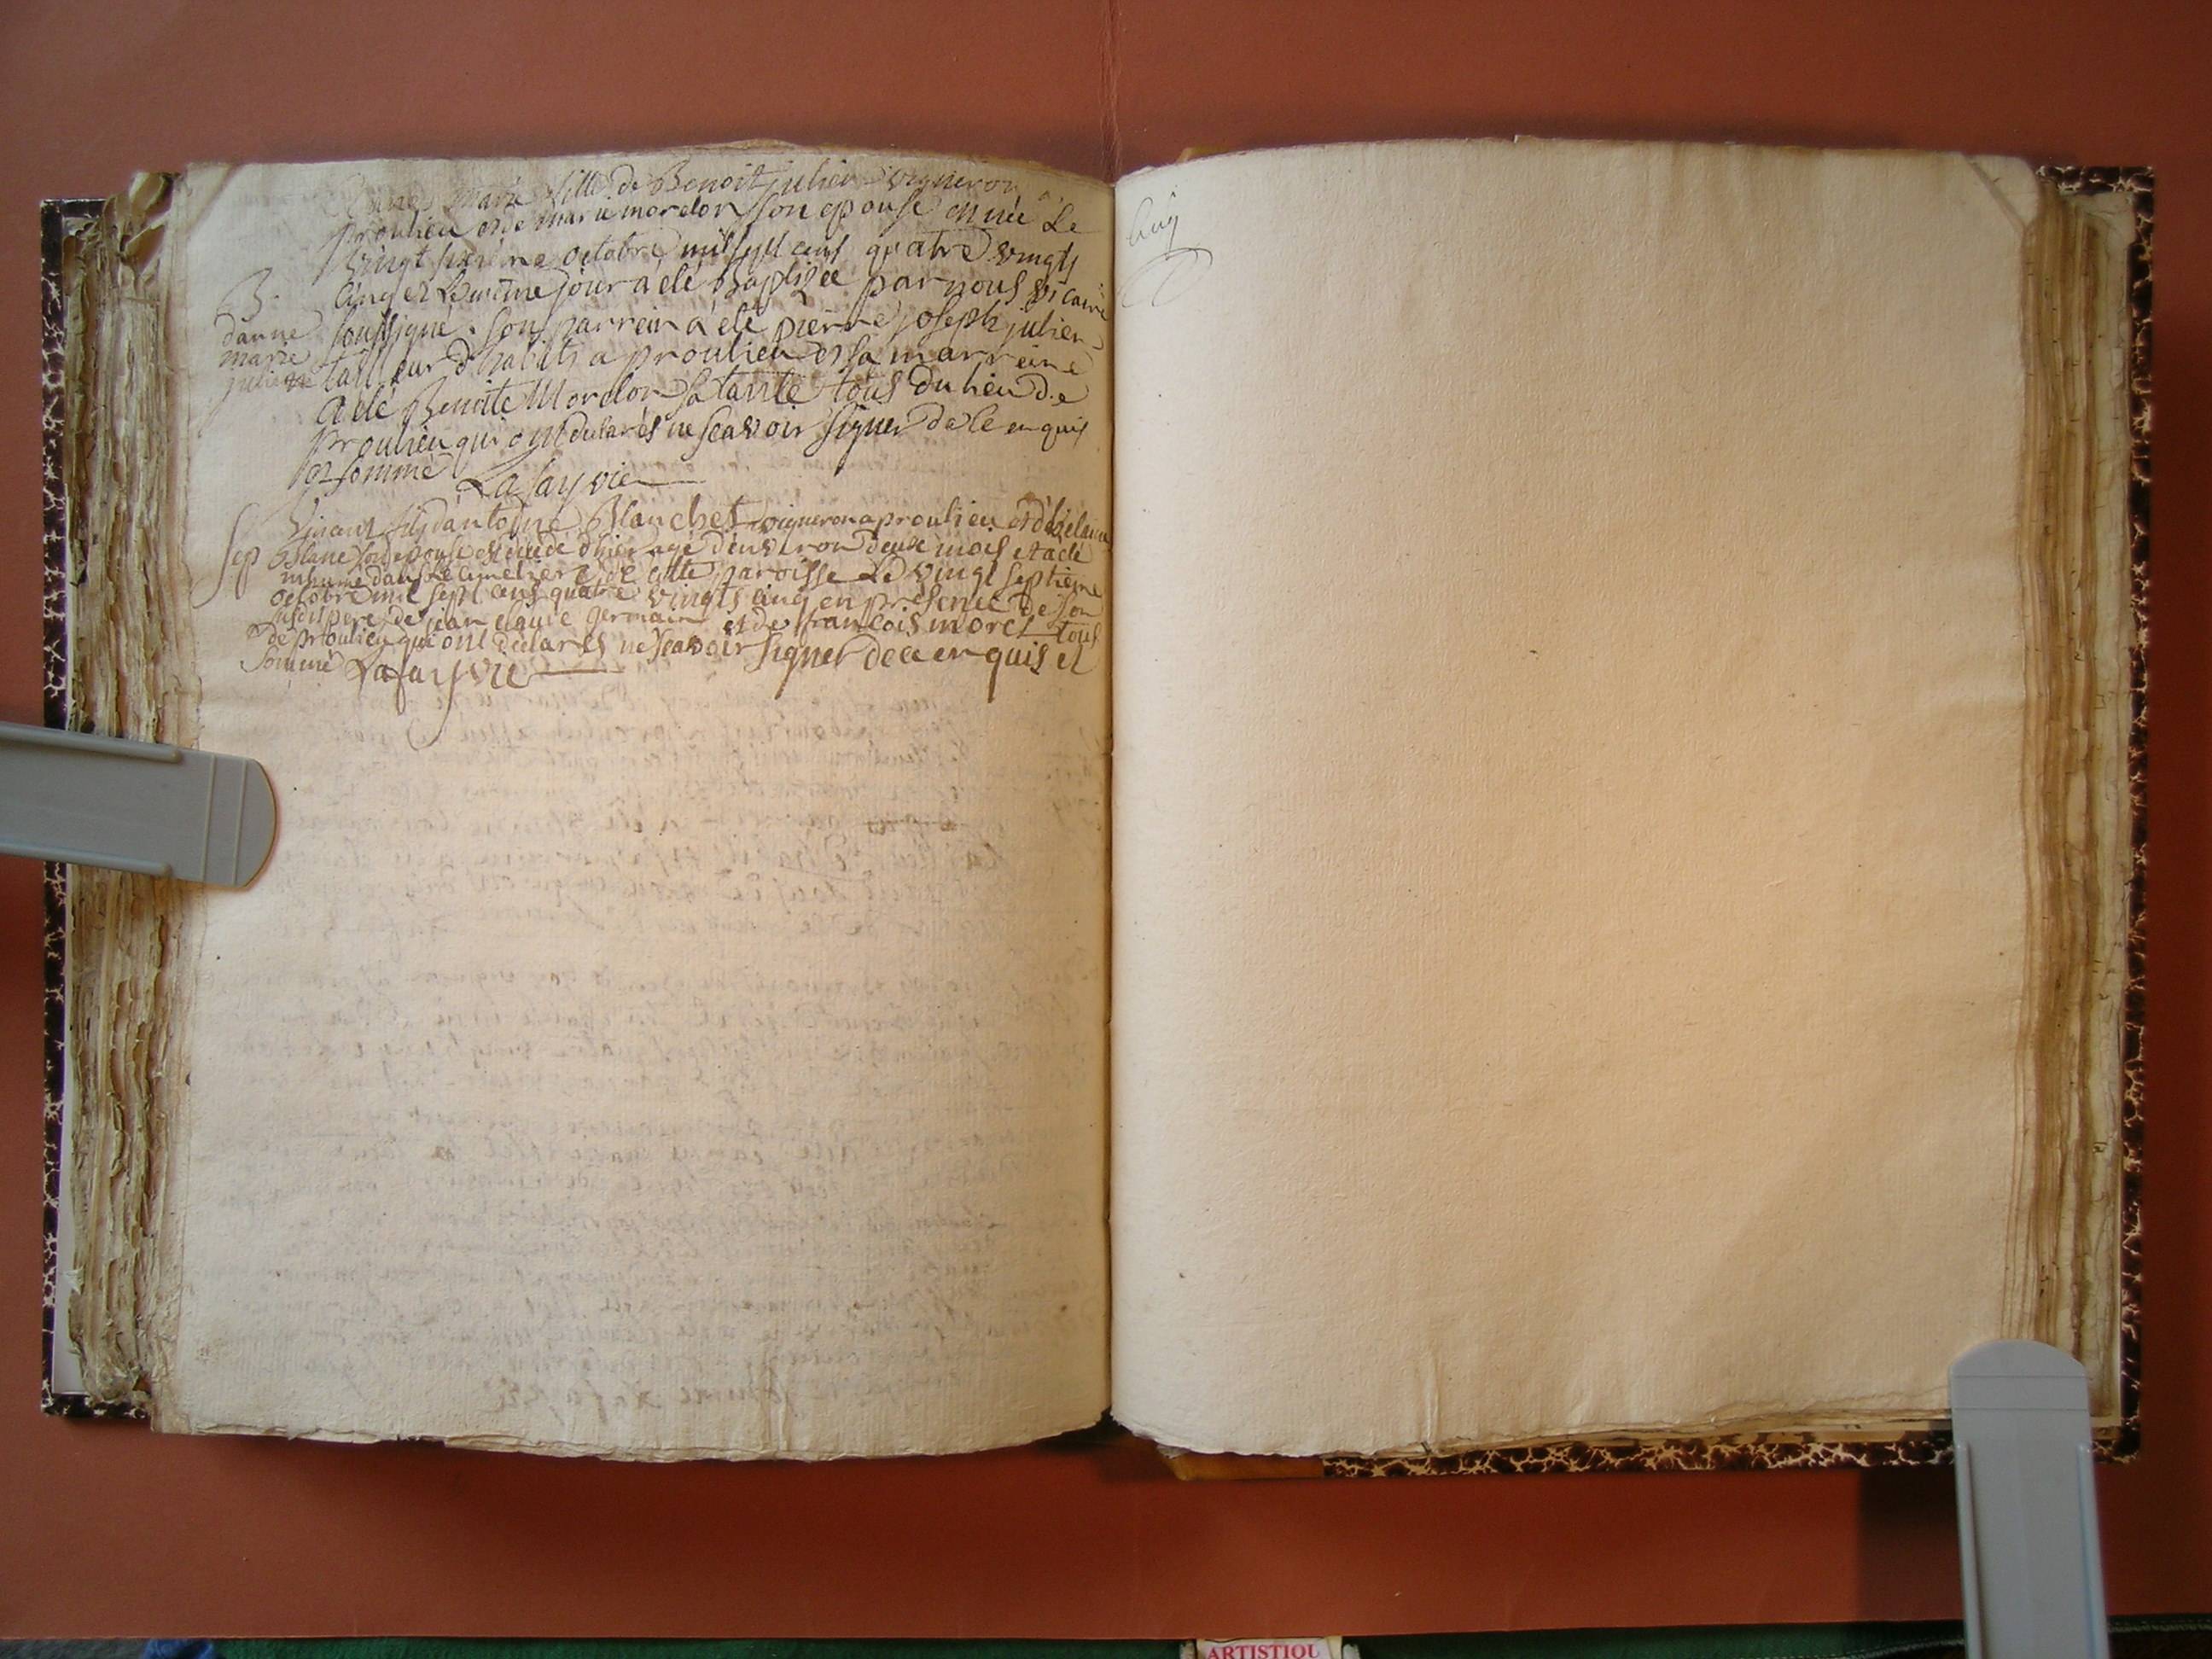 anne Marie fille de Benoit julien vigneron à
proulieu et de marie mordon son epouse est née Le
vingt sixième octobre mil sept cent quatre vingts
cinq et Le même jour a été Baptizée par nous vicaire
B.
danne
marie
julienne
soussigné. son parrein a été pierre joseph julien
tailleur d'habits a proulieu et sa marreine
a été Benoite Mordon sa tante tous du lieu de
proulieu qui ont declarés ne scavoir signer de ce enquis
et sommé Lafayvie
Sep
Vincent fils d'antoine Blanchet vigneron a proulieu et d'
Blanc son epouse est décédé d'hier agé d'environ deux mois et a été
inhumé dans Le cimetiere de cette paroisse Le vingt septieme
octobre mil sept cens quatre vingts cinq en présence de son
susdit pere de jean claude germain et de francois morel tous
de proulieu qui ont déclarés ne scavoir signer de ce enquis et
sommé Lafayvie
ARTISTIQU